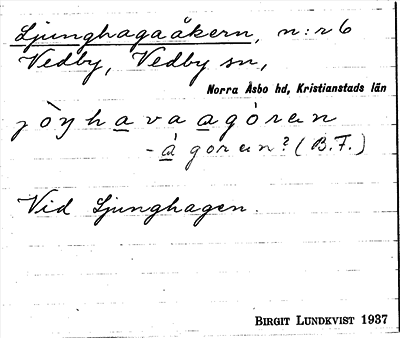 Ljunghagaåkern, n:r 6
Vedby, Vedby sn,
Norra Åsbo hd, Kristianstads län
jòŋhavaagòran
-àgoran? (B.F.)
Vid Ljunghagen.
BIRGIT LUNDKVIST 1937